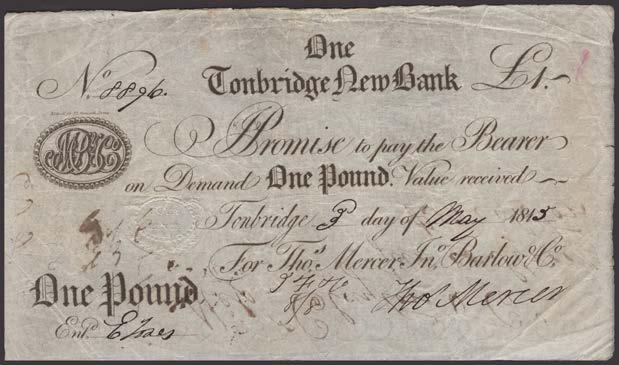 One
No. 8896. Tonbridge New Bank £1.-
I Promise to pay the Bearer
on Demand One Pound. Value received
Tonbridge 3 day of May 1815
For Thos. Mercer, Jno. Barlow & Co.
One Pound
Thos Mercer
Entd.